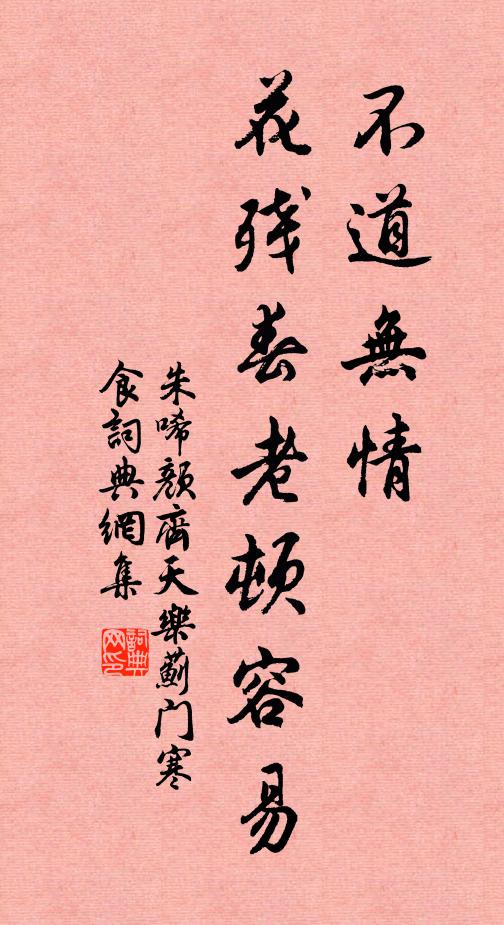 不道無情
花残春老頓容易
朱唏顏齊天樂薊门寒
食詞典網集
詞典网印